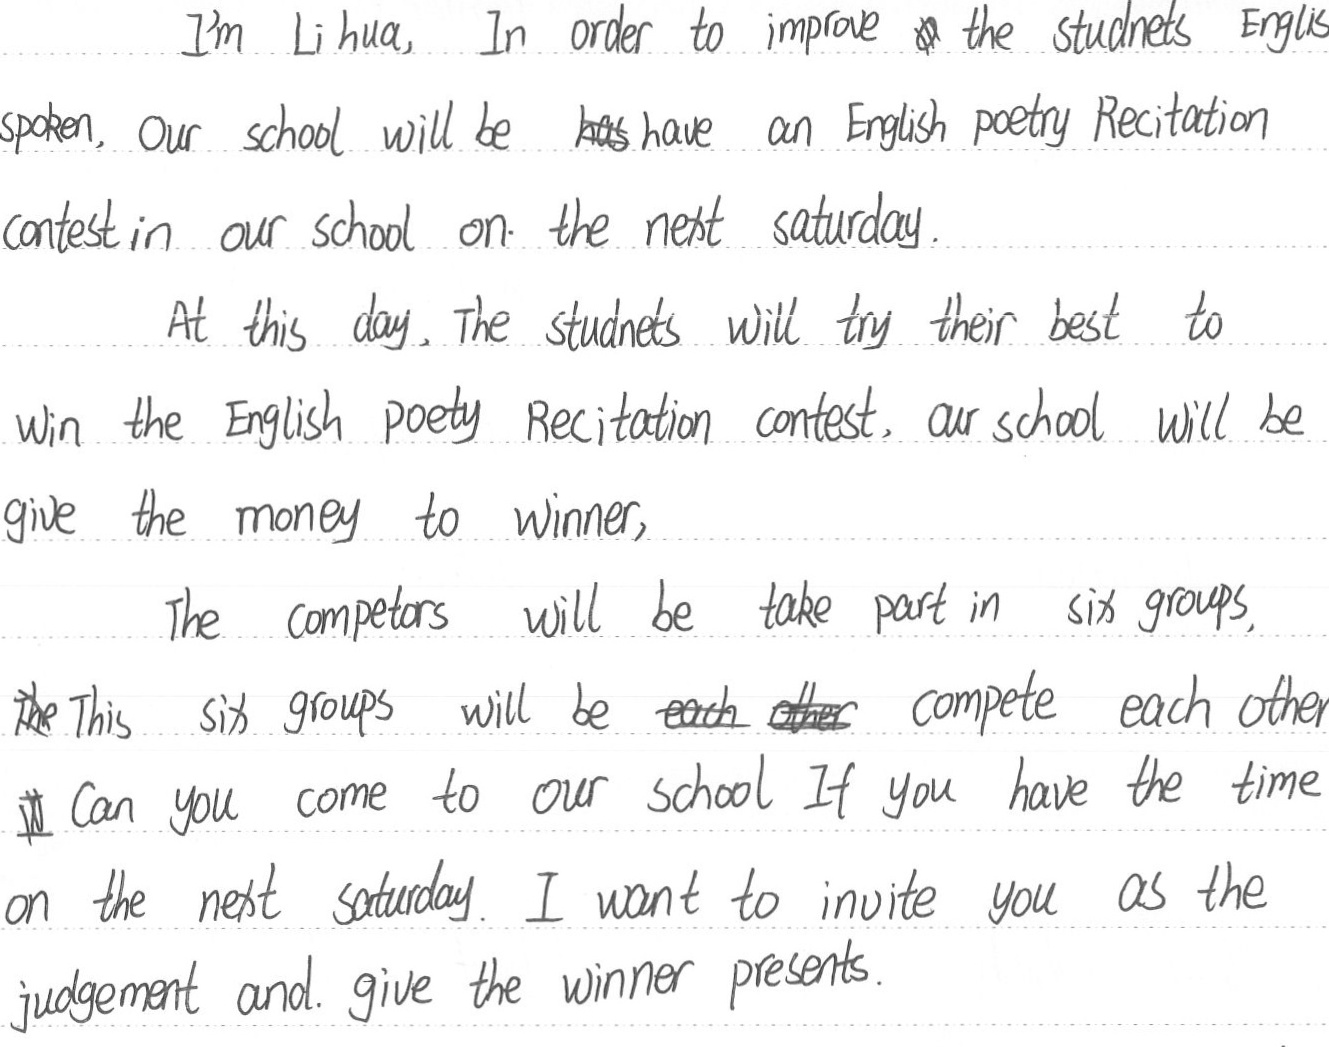 I'm Li hua, In order to improve the studnets Englis
spoken. Our school will be have an English poetry Recitation
contest in our school on the next saturday.
At this day. The studnets will try their best to
win the English poety Recitation contest. our school will be
give the money to winner,
The competors will be take part in six groups,
This six groups will be compete each other
Can you come to our school If you have the time
on the next saturday. I want to invite you as the
judgement and. give the winner presents.